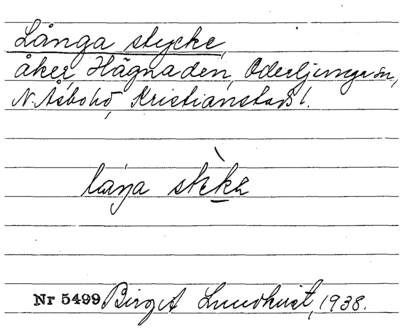 Långa stycke,
åker, Hägnaden, Oderljunga sn,
N. Åsbo hd, Kristianstads l.
låŋa
Nr 5499 Birgit Lundhqvist, 1938.